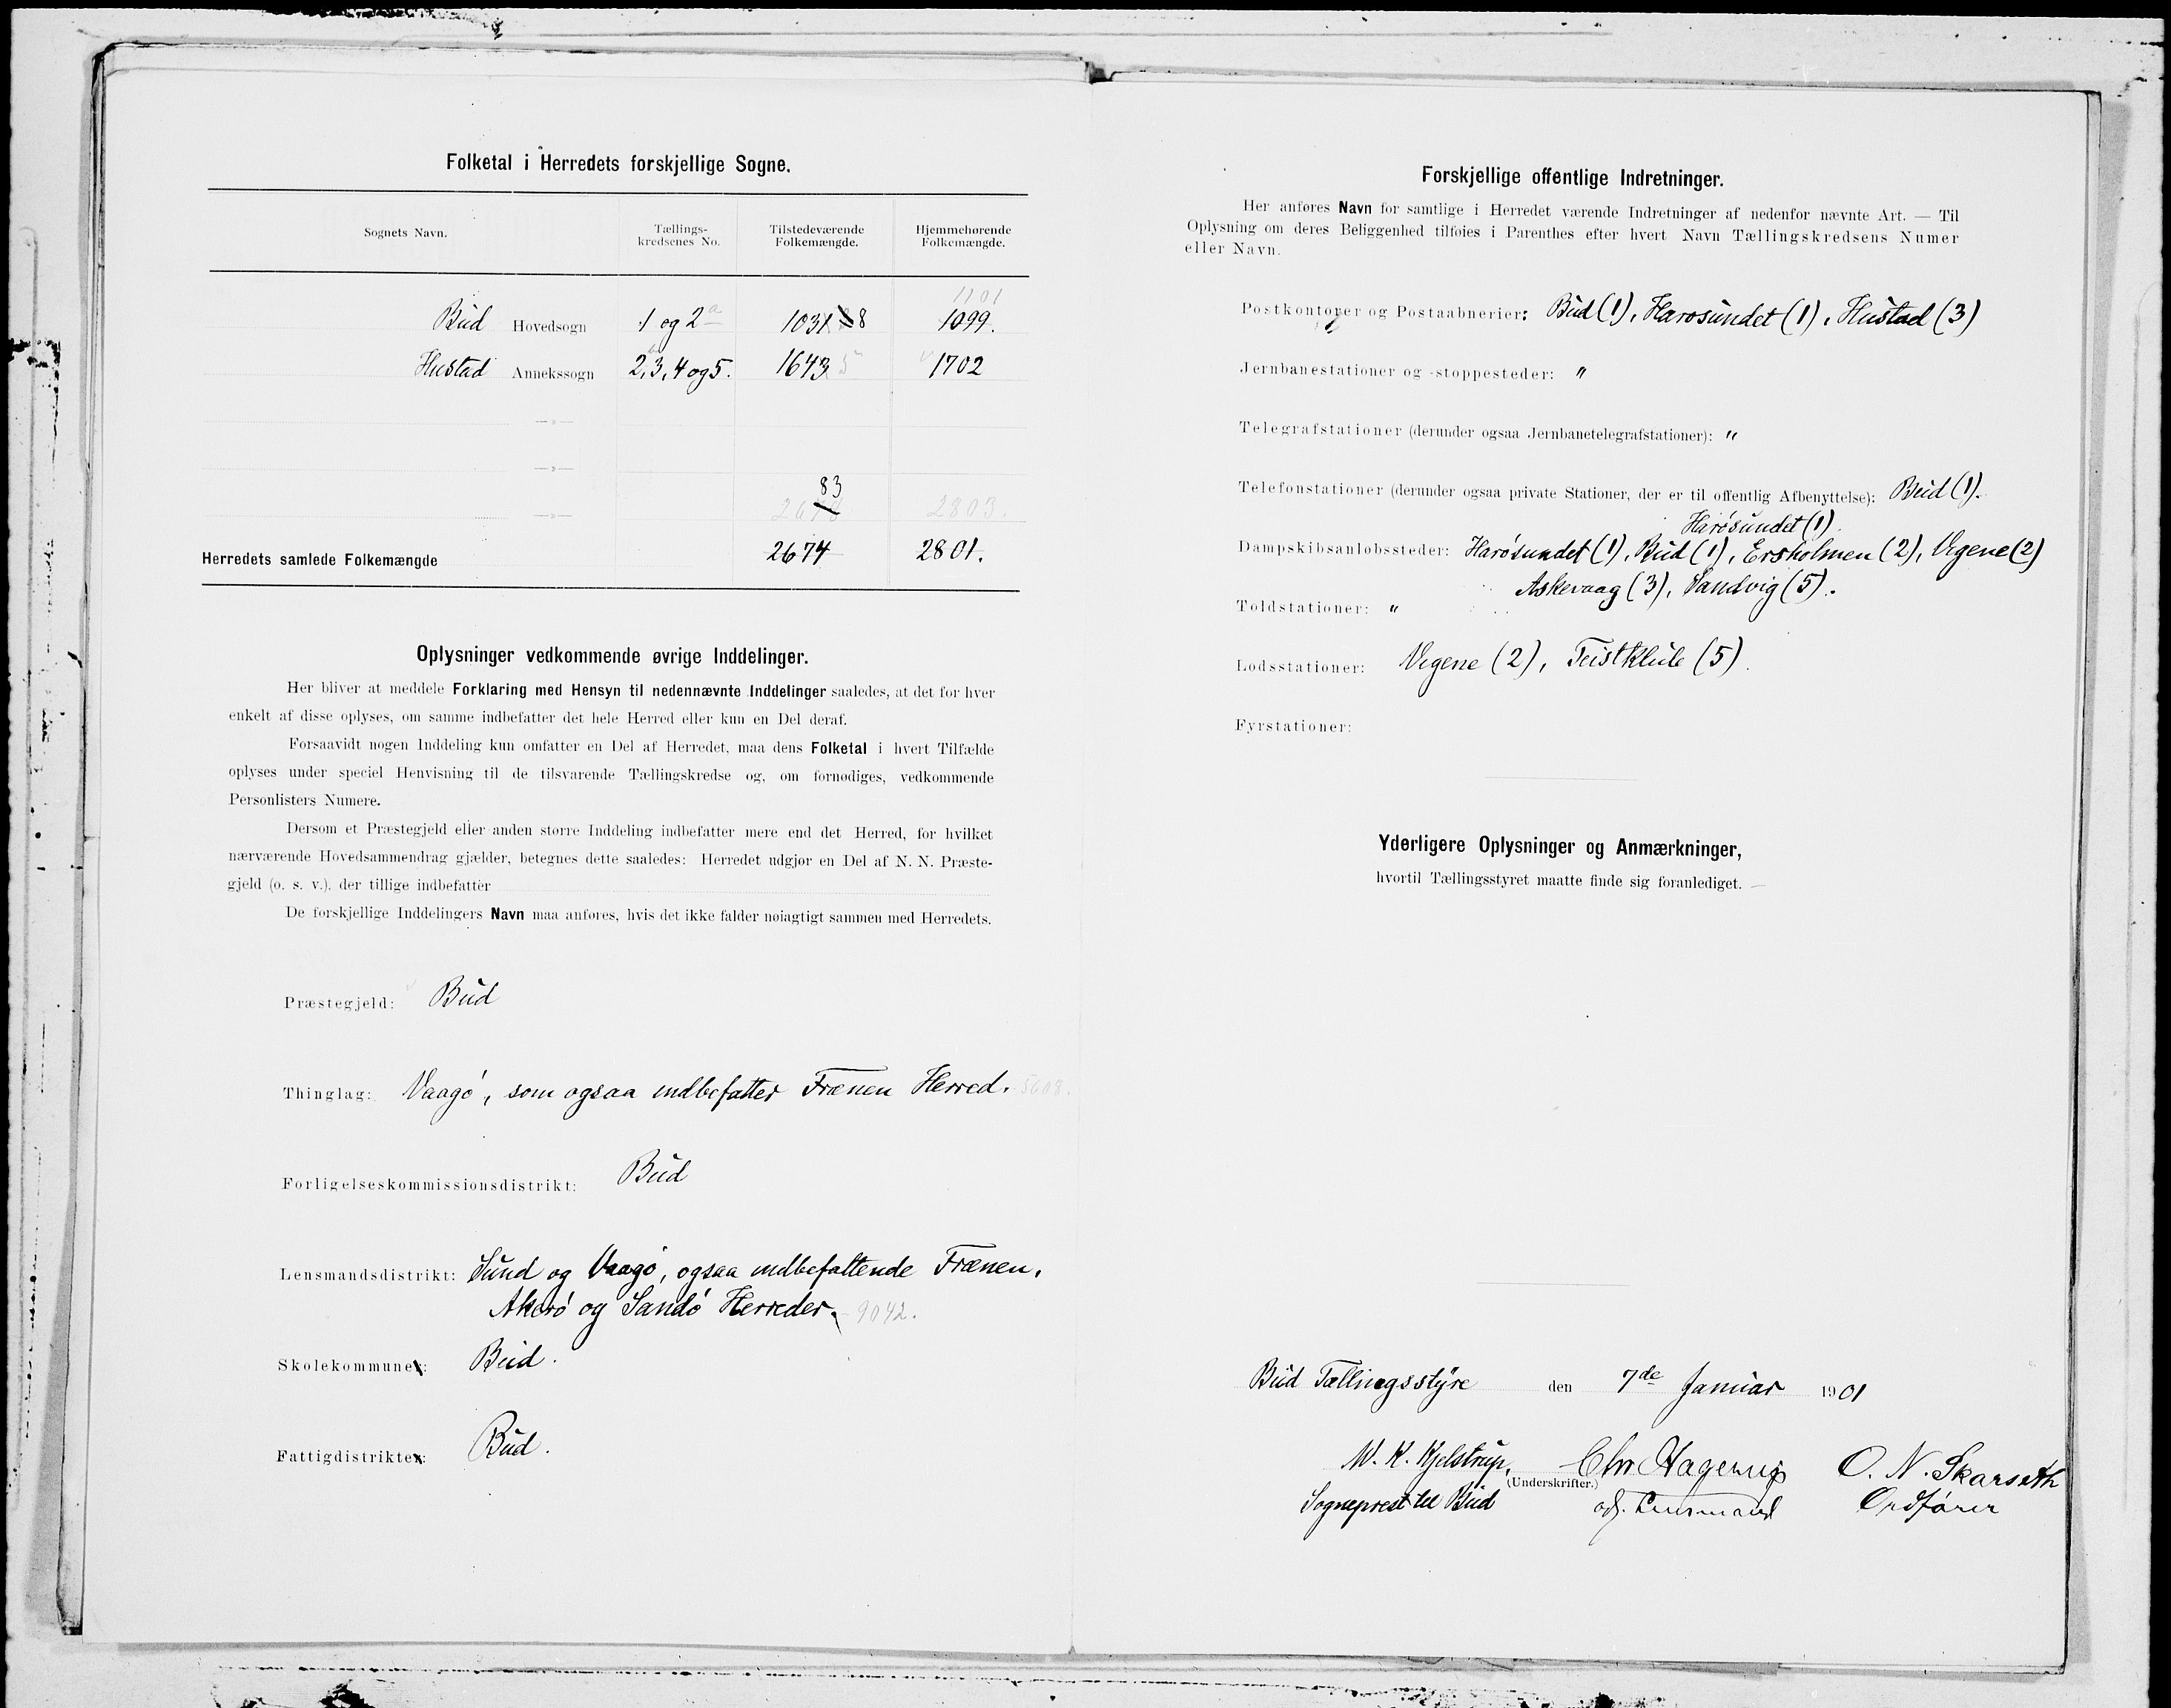 Folketal i Herredets forskjellige Sogne.
Sognets Navn.
Tællings-
kredsenes No.
Tilstedeværende
Folkemængde.
Hjemmehørende
Folkemængde.
1101
Bud Hovedsogn 1 og 2a 1031 8 1099.
Hustad Annekssogn 2b, 3, 4 og 5. 1643 5 1702
—»—
—»—
83
—»— 2678 2803.
Herredets samlede Folkemængde 2674 2801.
Oplysninger vedkommende øvrige Inddelinger.
Her bliver at meddele Forklaring med Hensyn til nedennævnte Inddelinger saaledes, at det for hver
enkelt af disse oplyses, om samme indbefatter det hele Herred eller kun en Del deraf.
Forsaavidt nogen Inddeling kun omfatter en Del af Herredet, maa dens Folketal i hvert Tilfælde
oplyses under speciel Henvisning til de tilsvarende Tællingskredse og, om fornødiges, vedkommende
Personlisters Numere.
Dersom et Præstegjeld eller anden større Inddeling indbefatter mere end det Herred, for hvilket
nærværende Hovedsammendrag gjælder, betegnes dette saaledes: Herredet udgjør en Del af N. N. Præste-
gjeld (o. s. v.), der tillige indbefatter
De forskjellige Inddelingers Navn maa anføres, hvis det ikke falder nøiagtigt sammen med Herredets.
Præstegjeld: Bud
Thinglag: Vaagø, som ogsaa indbefatter Frænen Herred. 5608.
Forligelseskommissionsdistrikt: Bud
Lensmandsdistrikt: Sund og Vaagø, ogsaa indbefattende Frænen,
Akerø og Sandø Herreder. 9042.
Skolekommuner: Bud.
Fattigdistrikter: Bud.
Forskjellige offentlige Indretninger.
Her anføres Navn for samtlige i Herredet værende Indretninger af nedenfor nævnte Art. — Til
Oplysning om deres Beliggenhed tilføies i Parenthes efter hvert Navn Tællingskredsens Numer
eller Navn.
Postkontorer og Postaabnerier: Bud (1), Harøsundet (1), Hustad (3)
Jernbanestationer og -stoppesteder: "
Telegrafstationer (derunder ogsaa Jernbanetelegrafstationer): "
Telefonstationer (derunder ogsaa private Stationer, der er til offentlig Afbenyttelse): Bud (1).
Harøsundet (1).
Dampskibsanløbssteder: Harøsundet (1), Bud (1), Ersholmen (2), Vegene (2)
Askevaag (3), Sandvig (5).
Toldstationer: "
Lodsstationer: Vegene (2), Teistklub (5).
Fyrstationer:
Yderligere Oplysninger og Anmærkninger,
hvortil Tællingsstyret maatte finde sig foranlediget.
Bud Tællingsstyre den 7de Januar 1901
M. K. Kjelstrup, Chr Hagerup O. N. Skarseth
(Underskrifter.)
Sogneprest til Bud Lensmand Ordfører